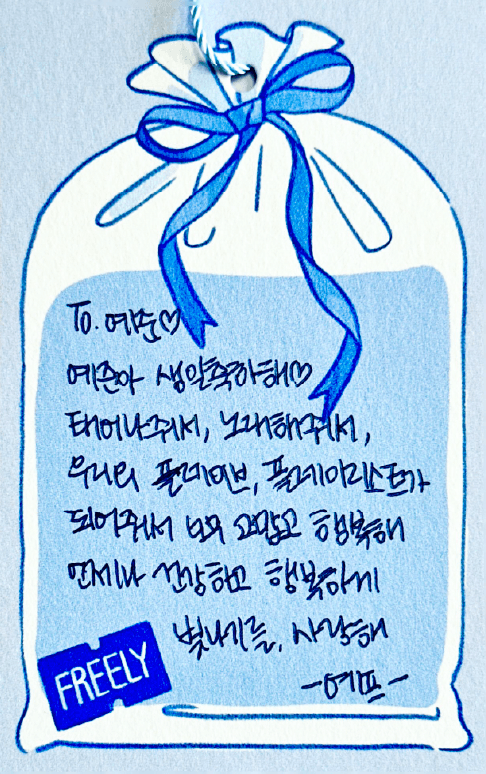 To. 예준♡
예준아 생일축하해♡
태어나줘서, 노래해줘서,
우리의 플레이브, 플레이리스트가
되어줘서 너무 고맙고 행복해
언제나 건강하고 행복하게
빛나기를, 사랑해
-예프-
FREELY